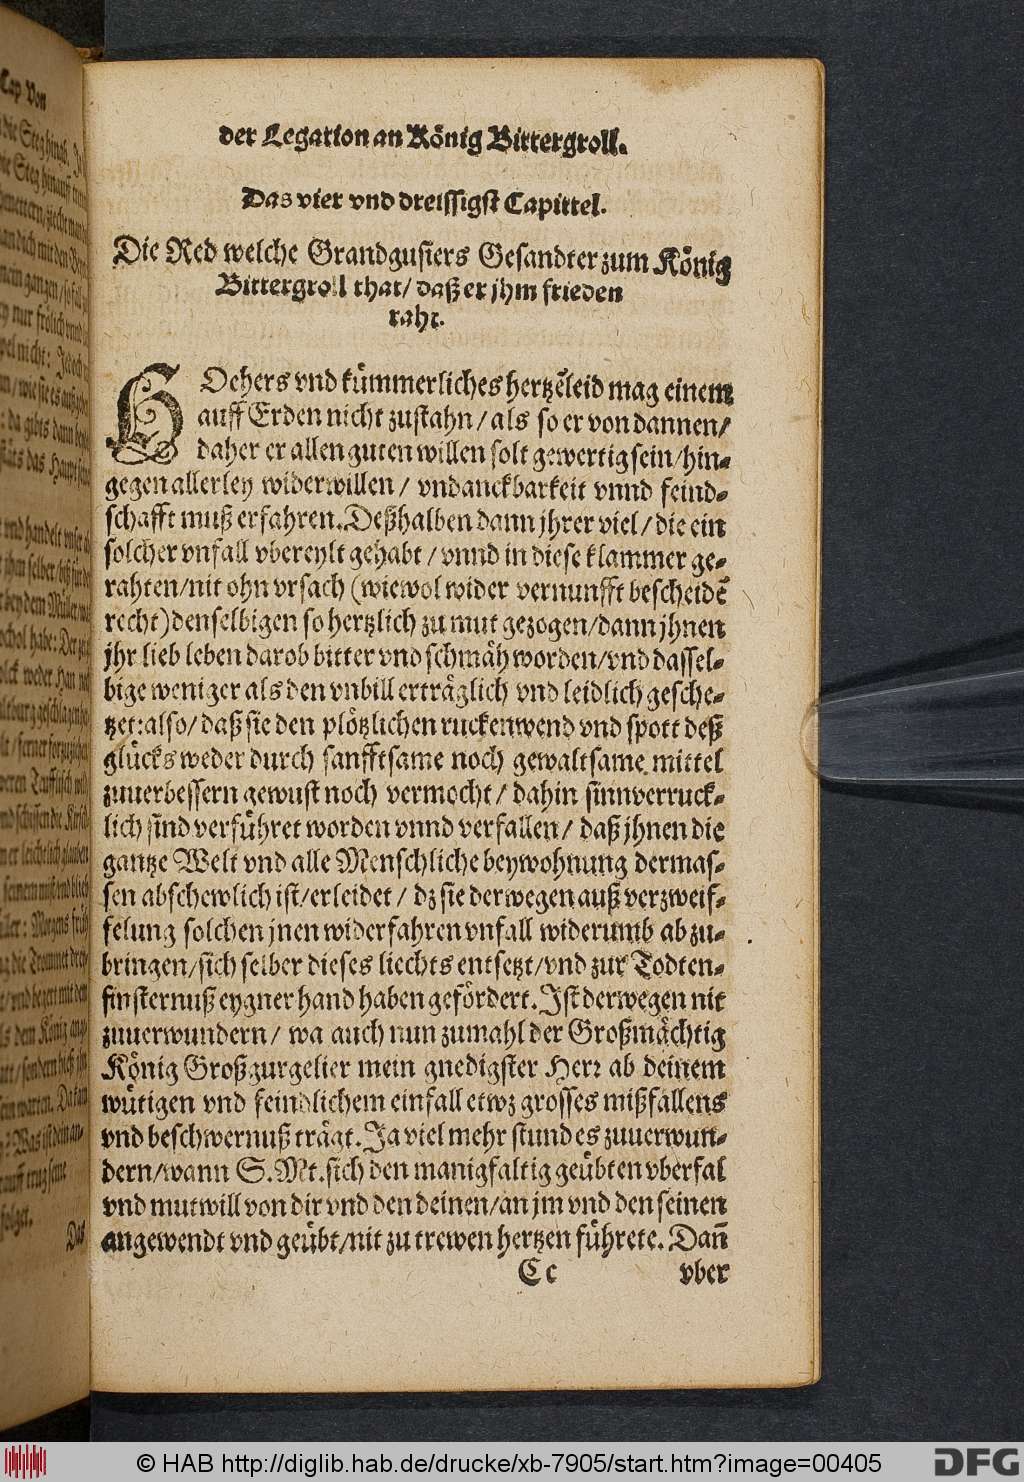 der Legation an König Bittergroll.
Das vier vnd dreissigst Capittel.
Die Red welche Grandgusiers Gesandter zum König
Bittergroll that/ daß er jhm frieden
raht.
HOehers vnd kümmerliches hertzẽleid mag einem
auff Erden nicht zustahn/ als so er von dannen/
daher er allen guten willen solt gewertig sein/ hin-
gegen allerley widerwillen/ vndanckbarkeit vnnd feind-
schafft muß erfahren. Deßhalben dann jhrer viel/ die ein
solcher vnfall vbereylt gehabt/ vnnd in diese klammer ge-
rahten/ nit ohn vrsach (wiewol wider vernunfft bescheidẽ
recht) denselbigen so hertzlich zu mut gezogen/ dann jhnen
jhr lieb leben darob bitter vnd schmäh worden/ vnd dassel-
bige weniger als den vnbill erträglich vnd leidlich gesche-
tzet: also/ daß sie den plötzlichen ruckenwend vnd spott deß
glücks weder durch sanfftsame noch gewaltsame mittel
zuuerbessern gewust noch vermocht/ dahin sinnverruck-
lich sind verführet worden vnnd verfallen/ daß jhnen die
gantze Welt vnd alle Menschliche beywohnung dermas-
sen abschewlich ist/ erleidet/ dz sie derwegen auß verzweif-
felung solchen jnen widerfahren vnfall widerumb abzu-
bringen/ sich selber dieses liechts entsetzt/ vnd zur Todten-
finsternuß eygner hand haben gefördert. Ist derwegen nit
zuuerwundern/ wa auch nun zumahl der Großmächtig
König Großgurgelier mein gnedigster Herr ab deinem
wütigen vnd feindlichem einfall etwz grosses mißfallens
vnd beschwernuß trägt. Ja viel mehr stund es zuuerwun-
dern/ wann S. Mt. sich den manigfaltig geübten vberfal
vnd mutwill von dir vnd den deinen/ an jm vnd den seinen
angewendt vnd geübt/ nit zu trewen hertzen führete. Dañ
Cc vber
© HAB http://diglib.hab.de/drucke/xb-7905/start.htm?image=00405
DFG